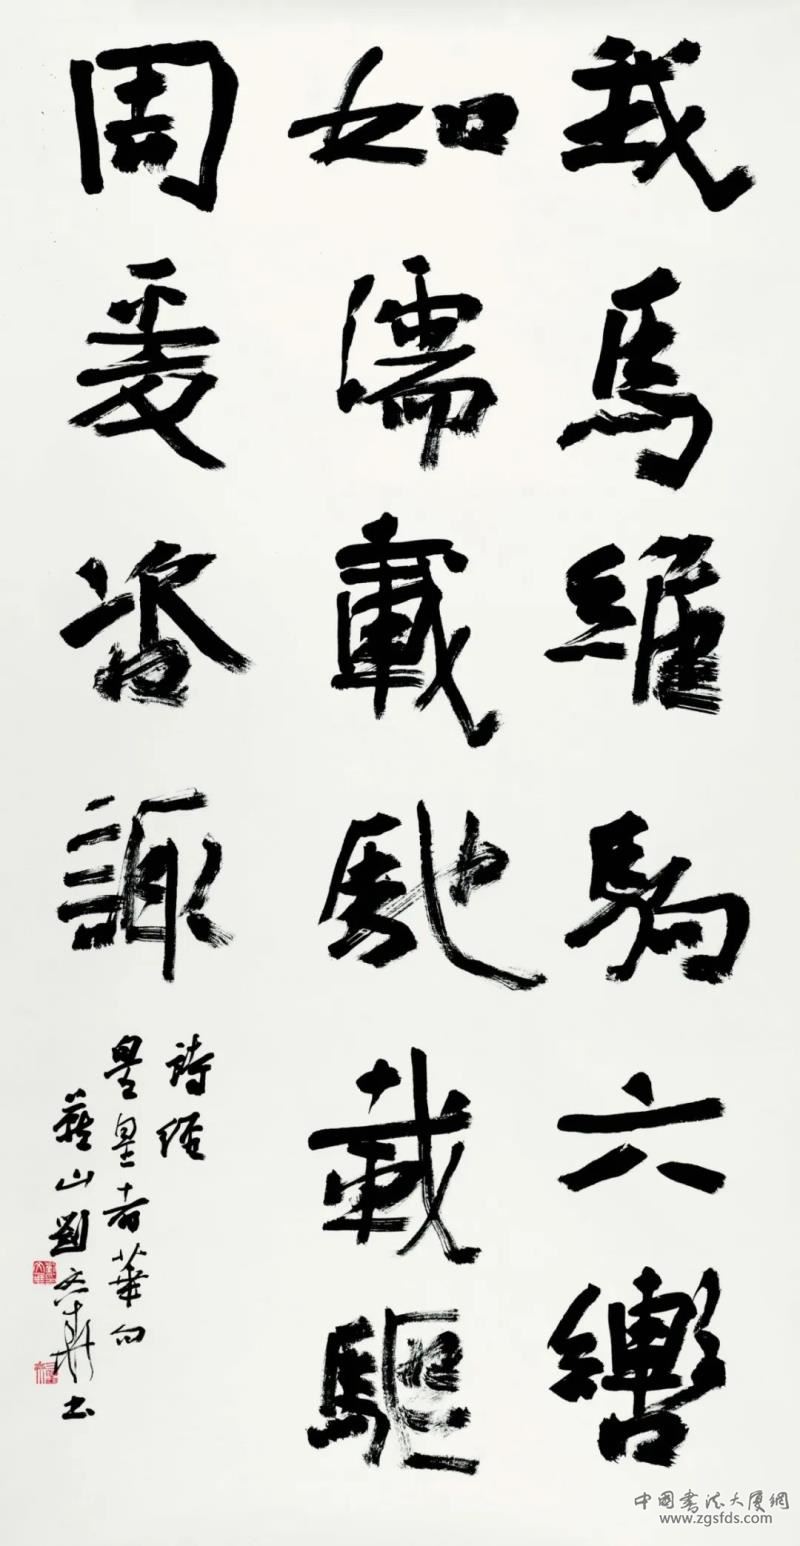 我馬維駒六轡
如濡載馳載驅
周爰咨諏
詩經
皇皇者華句
山劉
書
中国书法大厦網
www.zgsfds.com